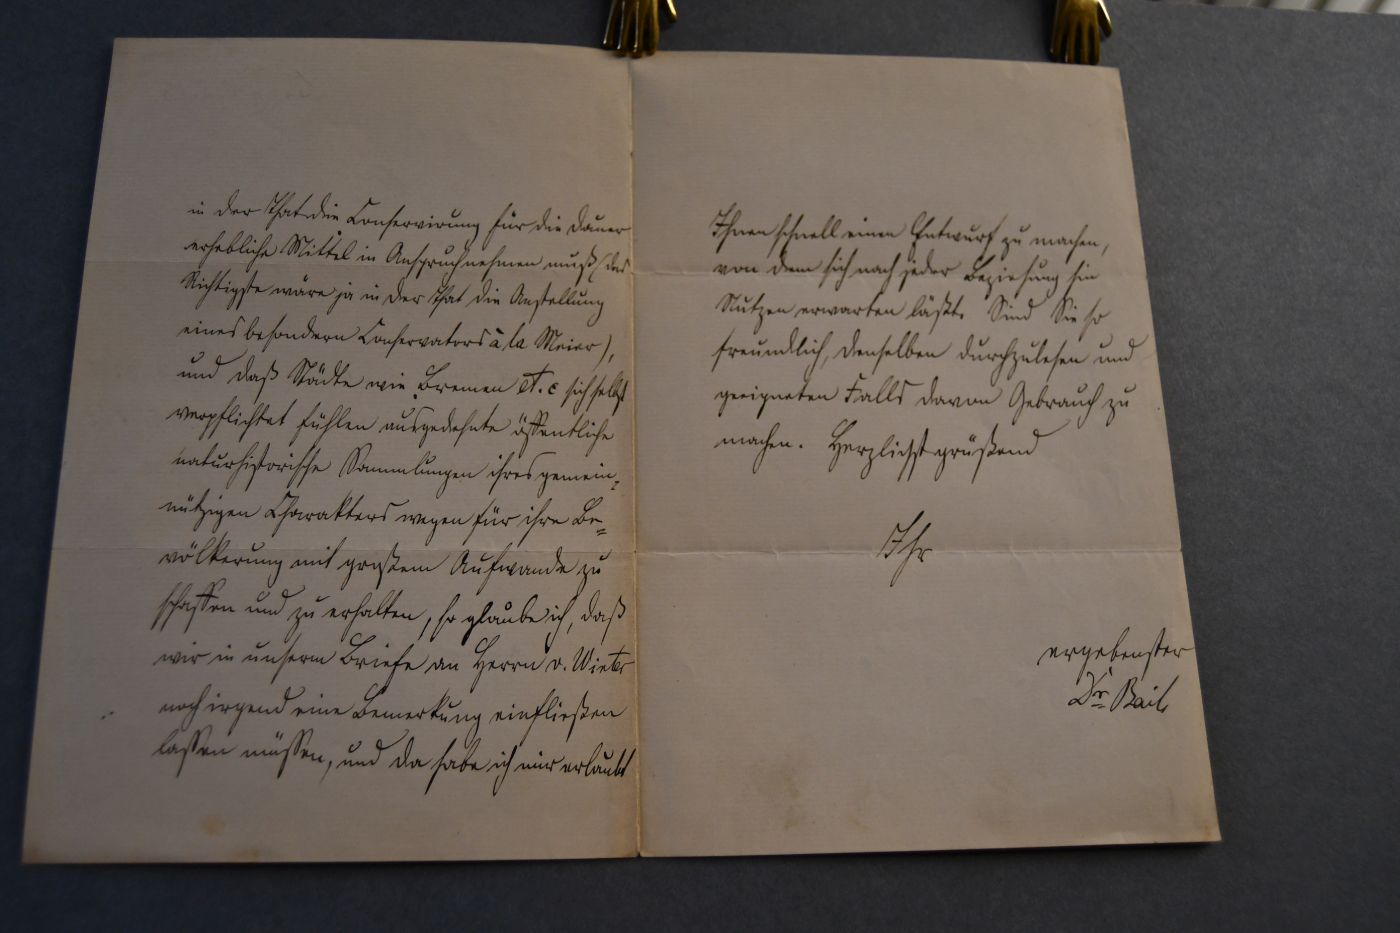 in der That die Conservirung für die Dauer
erhebliche Mittel in Anspruch nehmen muß (das
Richtigste wäre ja in der That die Anstellung
eines besondern Conservators à la Meier),
und daß Städte wie Bremen et. c sich selbst
verpflichtet fühlen ausgedehnte öffentliche
naturhistorische Sammlungen ihres gemein-
nützigen Charakters wegen für ihre Be-
völkerung mit großem Aufwande zu
schaffen und zu erhalten, so glaube ich, daß
wir in unserm Briefe an Herrn v. Winter
noch irgend eine Bemerkung einfließen
lassen müssen, und da habe ich mir erlaubt
Ihnen schnell einen Entwurf zu machen,
von dem sich nach jeder Beziehung hin
Nutzen erwarten läßt. Sind Sie so
freundlich, denselben durchzulesen und
geeigneten Falls davon Gebrauch zu
machen. Herzlichst grüßend
Ihr
ergebenster
Dr Bail